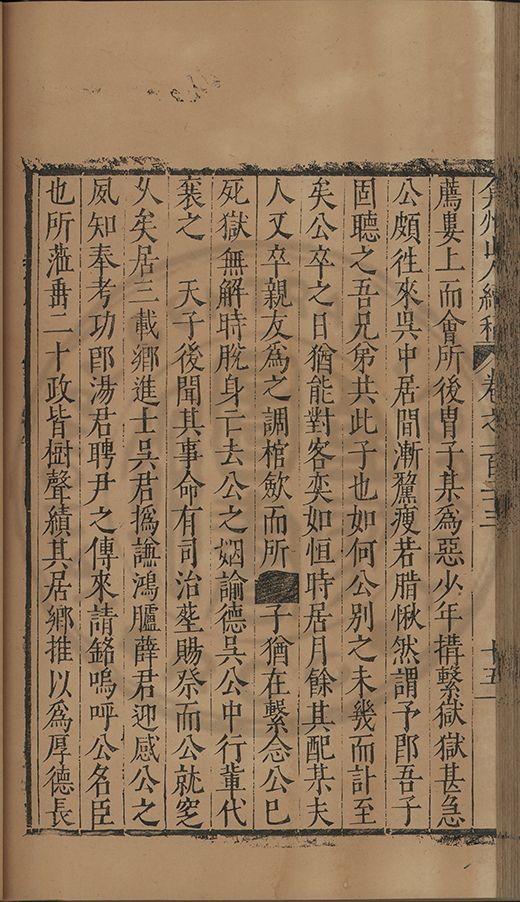 弇州山人續稿 卷之一百二十三 十五
薦婁上而會所後胄子某爲惡少年搆繫獄獄甚急
公頗徃來吳中居間漸羸瘦若腊愀然謂予郎吾子
固聽之吾兄弟共此子也如何公別之未幾而訃至
矣公卒之日猶能對客奕如恒時居月餘其配某夫
人又卒親友爲之調棺歛而所 子猶在繫念公已
死獄無解時脫身亡去公之姻諭德吳公中行輩代
襄之 天子後聞其事命有司治塟賜祭而公就窆
乆矣居三載鄉進士吳君撝謙鴻臚薛君迎感公之
夙知奉考功郎湯君聘尹之傳來請銘嗚呼公名臣
也所蒞垂二十政皆樹聲績其居鄉推以爲厚德長